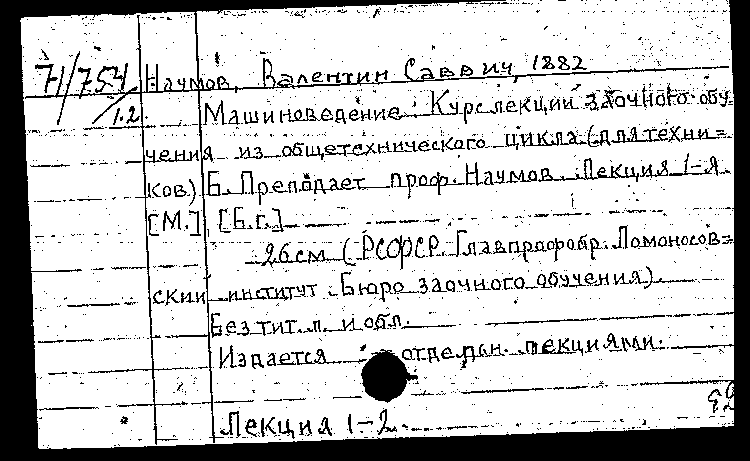 71/754 Наумов, Валентин Саввич, 1882
1.2. Машиноведение. Курс лекции заочного обу
чения из общетехнического цикла (для техни=
ков) Б. Преподает проф. Наумов. Лекция 1-я.
[М.], [Б.г.]
26см (РСФСР. Главпрофобр. Ломоносов=
скии институт. Бюро заочного обучения).
Без тит. л. и обл.
Издается отдельн. лекциями.
Лекция 1-2.